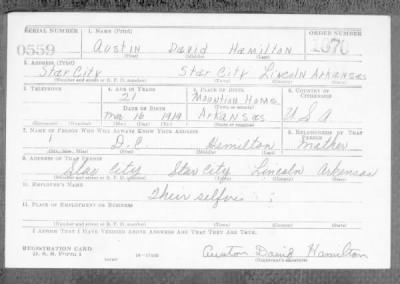 SERIAL NUMBER 1. NAME (Print) ORDER NUMBER
0559 Austin David Hamilton
(First) (Middle) (Last)
2. ADDRESS (Print)
Star City Star City Lincoln Arkansas
(Number and street or R. F. D. number) (Town) (County) (State)
3. TELEPHONE 4. AGE IN YEARS 5. PLACE OF BIRTH 6. COUNTRY OF CITIZENSHIP
21 Mountion Home
DATE OF BIRTH (Town or county)
Mar 16 1919 Arkansas U S A
(Exchange) (No.) (Mo.) (Day) (Yr.) (State or country)
7. NAME OF PERSON WHO WILL ALWAYS KNOW YOUR ADDRESS 8. RELATIONSHIP OF THAT PERSON
D. C Hamilton Mother
(Mr., Mrs., Miss) (First) (Middle) (Last)
9. ADDRESS OF THAT PERSON
Star City Star City Lincoln Arkansas
(Number and street or R. F. D. number) (Town) (County) (State)
10. EMPLOYER'S NAME
Their selfves
11. PLACE OF EMPLOYMENT OR BUSINESS
(Number and street or R. F. D. number) (Town) (County) (State)
I AFFIRM THAT I HAVE VERIFIED ABOVE ANSWERS AND THAT THEY ARE TRUE.
REGISTRATION CARD
D. S. S. Form 1 16—17105
Austin David Hamilton
(Registrant's signature)